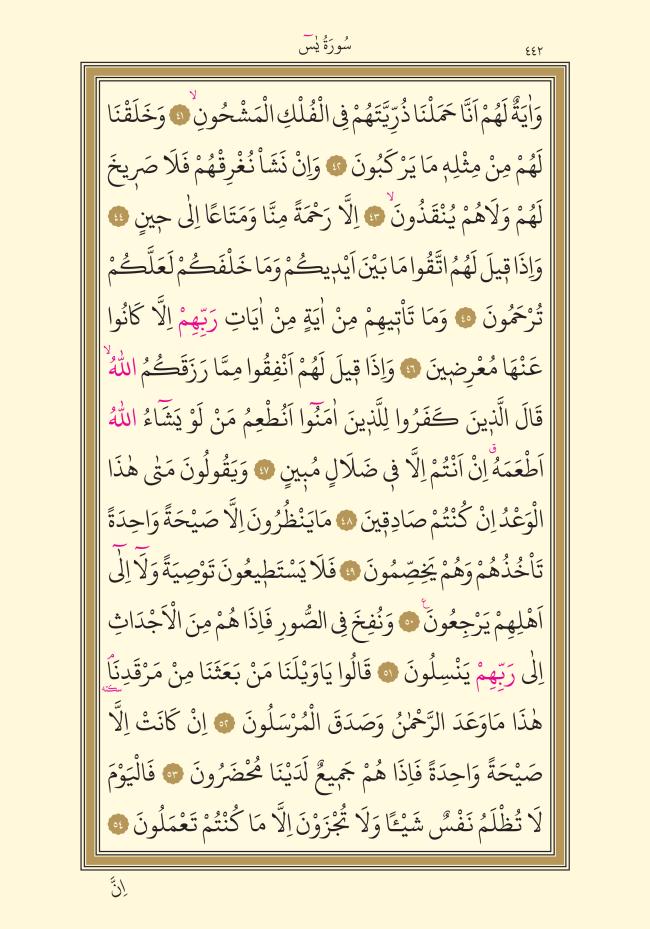 ٤٤٢
سُورَةُ يٰسٓ
وَاٰيَةٌ لَهُمْ اَنَّا حَمَلْنَا ذُرِّيَّتَهُمْ فِى الْفُلْكِ الْمَشْحُونِۙ ﴿٤١﴾ وَخَلَقْنَا
لَهُمْ مِنْ مِثْلِه۪ مَا يَرْكَبُونَ ﴿٤٢﴾ وَاِنْ نَشَأْ نُغْرِقْهُمْ فَلَا صَر۪يخَ
لَهُمْ وَلَاهُمْ يُنْقَذُونَۙ ﴿٤٣﴾ اِلَّا رَحْمَةً مِنَّا وَمَتَاعًا اِلٰى ح۪ينٍ ﴿٤٤﴾
وَاِذَا ق۪يلَ لَهُمُ اتَّقُوا مَا بَيْنَ اَيْد۪يكُمْ وَمَا خَلْفَكُمْ لَعَلَّكُمْ
تُرْحَمُونَ ﴿٤٥﴾ وَمَا تَأْت۪يهِمْ مِنْ اٰيَةٍ مِنْ اٰيَاتِ رَبِّهِمْ اِلَّا كَانُوا
عَنْهَا مُعْرِض۪ينَ ﴿٤٦﴾ وَاِذَا ق۪يلَ لَهُمْ اَنْفِقُوا مِمَّا رَزَقَكُمُ اللّٰهُۙ
قَالَ الَّذ۪ينَ كَفَرُوا لِلَّذ۪ينَ اٰمَنُٓوا اَنُطْعِمُ مَنْ لَوْ يَشَٓاءُ اللّٰهُ
اَطْعَمَهُۗ اِنْ اَنْتُمْ اِلَّا ف۪ى ضَلَالٍ مُب۪ينٍ ﴿٤٧﴾ وَيَقُولُونَ مَتٰى هٰذَا
الْوَعْدُ اِنْ كُنْتُمْ صَادِق۪ينَ ﴿٤٨﴾ مَايَنْظُرُونَ اِلَّا صَيْحَةً وَاحِدَةً
تَأْخُذُهُمْ وَهُمْ يَخِصِّمُونَ ﴿٤٩﴾ فَلَا يَسْتَط۪يعُونَ تَوْصِيَةً وَلَٓا اِلٰٓى
اَهْلِهِمْ يَرْجِعُونَ۟ ﴿٥٠﴾ وَنُفِخَ فِى الصُّورِ فَاِذَا هُمْ مِنَ الْاَجْدَاثِ
اِلٰى رَبِّهِمْ يَنْسِلُونَ ﴿٥١﴾ قَالُوا يَاوَيْلَنَا مَنْ بَعَثَنَا مِنْ مَرْقَدِنَاۢ سكته
هٰذَا مَاوَعَدَ الرَّحْمٰنُ وَصَدَقَ الْمُرْسَلُونَ ﴿٥٢﴾ اِنْ كَانَتْ اِلَّا
صَيْحَةً وَاحِدَةً فَاِذَا هُمْ جَم۪يعٌ لَدَيْنَا مُحْضَرُونَ ﴿٥٣﴾ فَالْيَوْمَ
لَا تُظْلَمُ نَفْسٌ شَيْـًٔا وَلَا تُجْزَوْنَ اِلَّا مَا كُنْتُمْ تَعْمَلُونَ ﴿٥٤﴾
اِنَّ